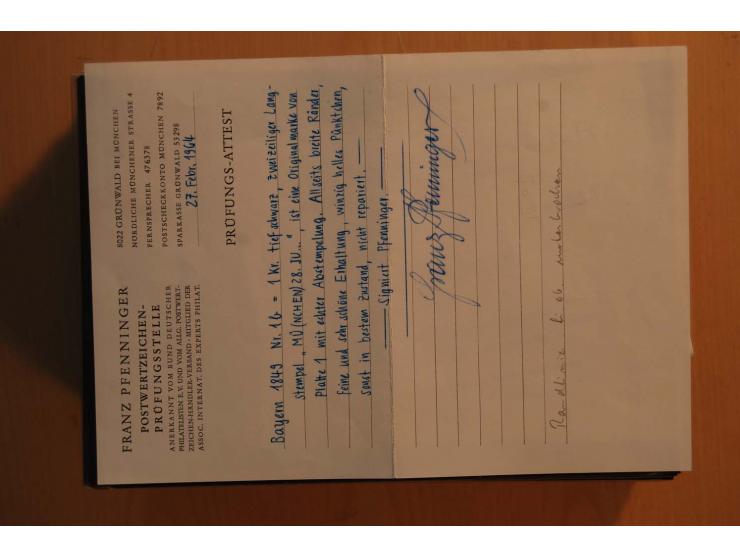 FRANZ PFENNINGER
POSTWERTZEICHEN-
PRÜFUNGSSTELLE
ANERKANNT VOM BUND DEUTSCHER
PHILATELISTEN E.V. UND VOM ALLG. POSTWERT-
ZEICHEN-HÄNDLER-VERBAND · MITGLIED DER
ASSOC. INTERNAT. DES EXPERTS PHILAT.
8022 GRÜNWALD BEI MÜNCHEN
NÖRDLICHE MÜNCHENER STRASSE 4
FERNSPRECHER 476378
POSTSCHECKKONTO MÜNCHEN 7892
SPARKASSE GRÜNWALD 53298
27. Febr. 1964
PRÜFUNGS-ATTEST
Bayern 1849 Nr. 1b = 1 Kr. tiefschwarz, zweizeiliger Lang-
stempel „MÜ(NCHEN) 28. JU...", ist eine Originalmarke von
Platte 1 mit echter Abstempelung. Allseits breite Ränder,
feine und sehr schöne Erhaltung, winzig helles Pünktchen,
sonst in bestem Zustand, nicht repariert.
Signiert Pfenninger.
Franz Pfenninger
Randlinie li ob unterbrochen